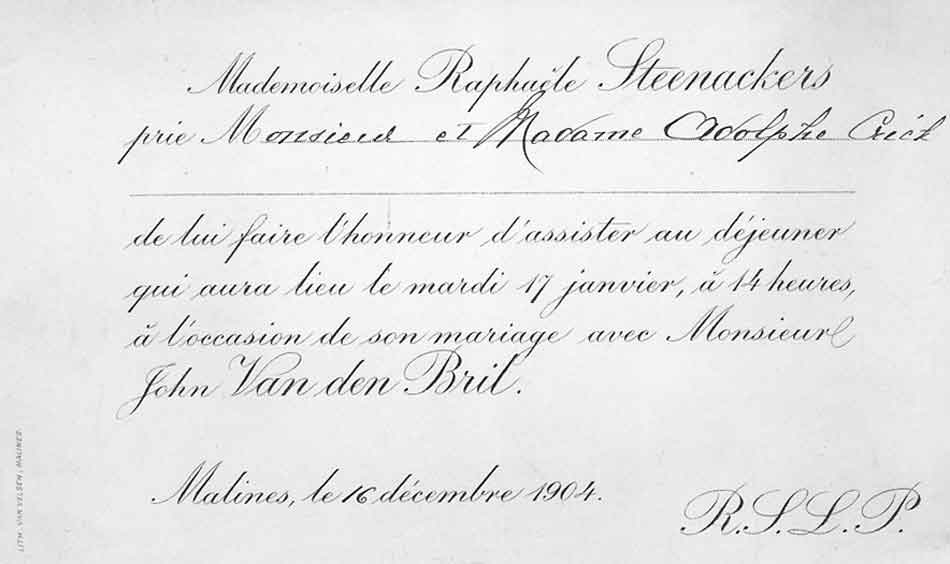 Mademoiselle Raphaële Steenackers
prie Monsieur et Madame Adolphe
de lui faire l'honneur d'assister au déjeuner
qui aura lieu le mardi 17 janvier, à 14 heures,
à l'occasion de son mariage avec Monsieur
John Van den Bril.
Malines, le 16 décembre 1904.
R.S.L.P.
LITH. VAN VELSEN, MALINES.